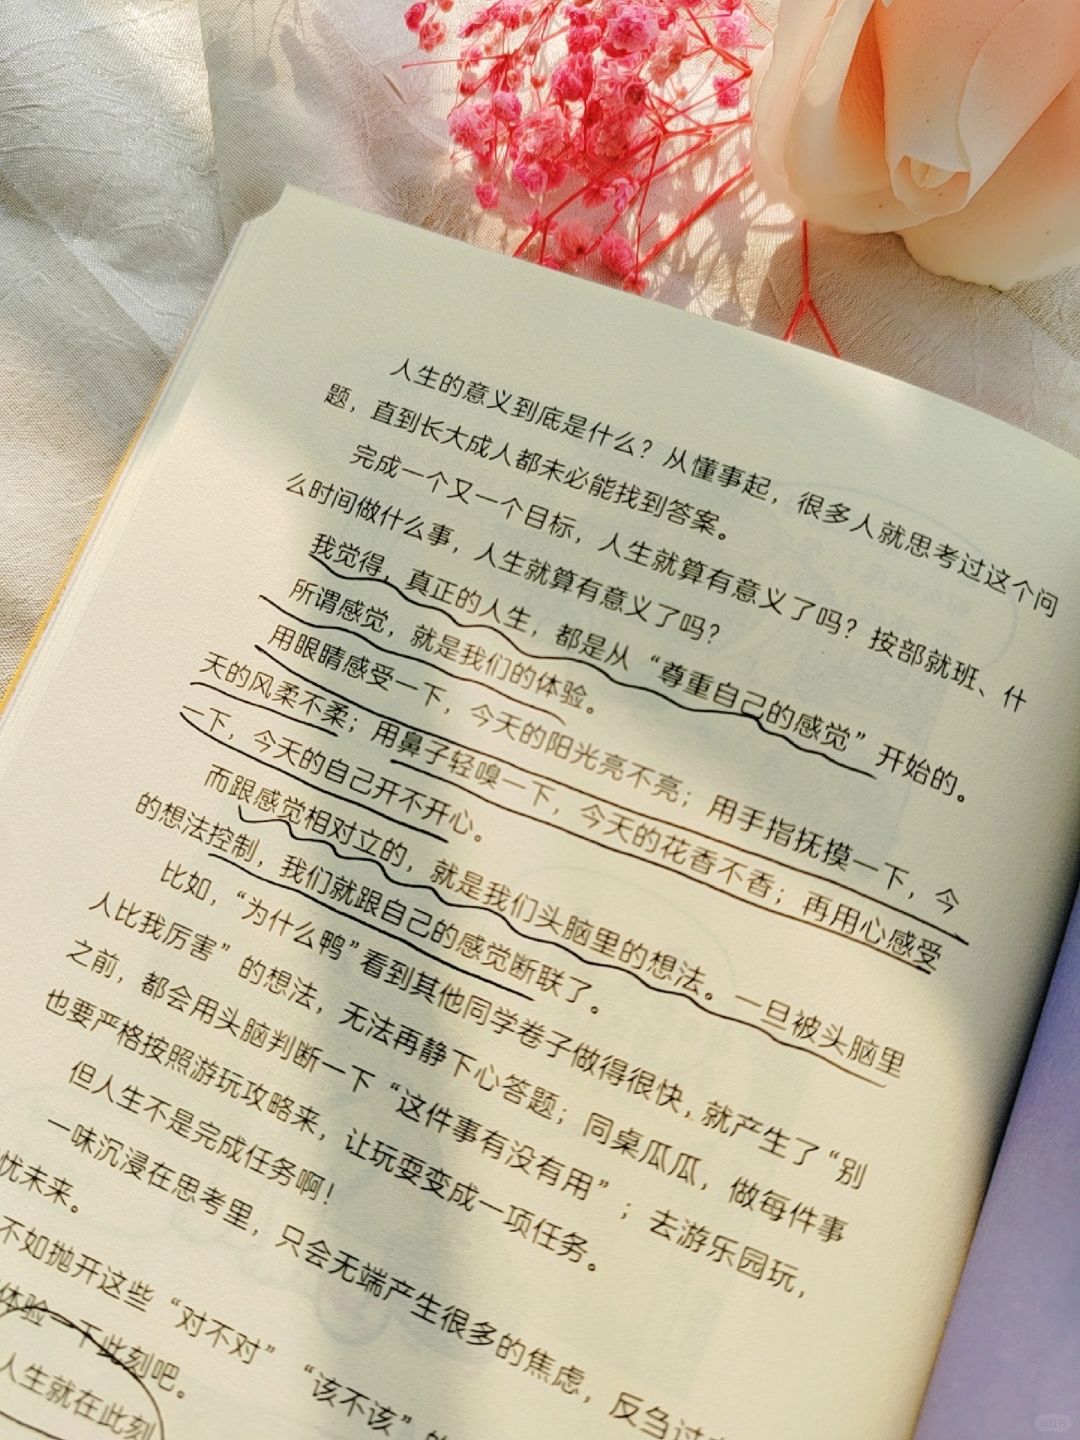 人生的意义到底是什么？从懂事起，很多人就思考过这个问
题，直到长大成人都未必能找到答案。
完成一个又一个目标，人生就算有意义了吗？按部就班、什
么时间做什么事，人生就算有意义了吗？
我觉得，真正的人生，都是从“尊重自己的感觉”开始的。
所谓感觉，就是我们的体验。
用眼睛感受一下，今天的阳光亮不亮；用手指抚摸一下，今
天的风柔不柔；用鼻子轻嗅一下，今天的花香不香；再用心感受
一下，今天的自己开不开心。
而跟感觉相对立的，就是我们头脑里的想法。一旦被头脑里
的想法控制，我们就跟自己的感觉断联了。
比如，“为什么鸭”看到其他同学卷子做得很快，就产生了“别
人比我厉害”的想法，无法再静下心答题；同桌瓜瓜，做每件事
之前，都会用头脑判断一下“这件事有没有用”；去游乐园玩，
也要严格按照游玩攻略来，让玩耍变成一项任务。
但人生不是完成任务啊！
一味沉浸在思考里，只会无端产生很多的焦虑，反刍过
忧未来。
不如抛开这些“对不对”“该不该”的
体验一下此刻吧。
人生就在此刻
小红书